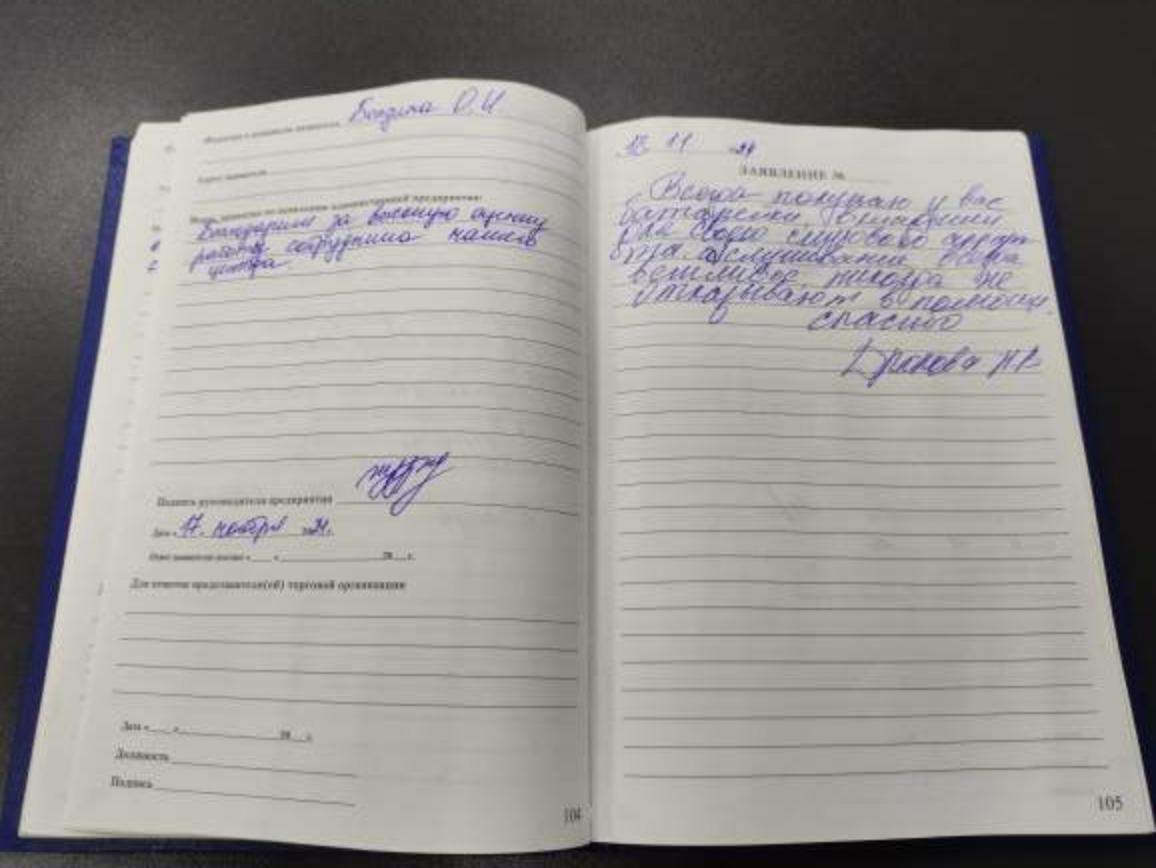 Фамилия и инициалы заявителя Бондина О.И
Адрес заявителя
Меры, принятые по заявлению администрацией предприятия:
Благодарим за высокую оценку
работы сотрудника нашего
центра
Подпись руководителя предприятия
Дата « 17 » ноября 2024г.
Ответ заявителю послан « » 20 г.
Для отметок представителя(ей) торговой организации
Дата « » 20 г.
Должность
Подпись
104
12 11 24
ЗАЯВЛЕНИЕ №
Всегда получаю у вас
батарейки, вкладыши
для своего слухового аппара
та. обслуживание всегда
вежливое, никогда не
отказывают в помощи.
спасибо
Дронова Н.В
105